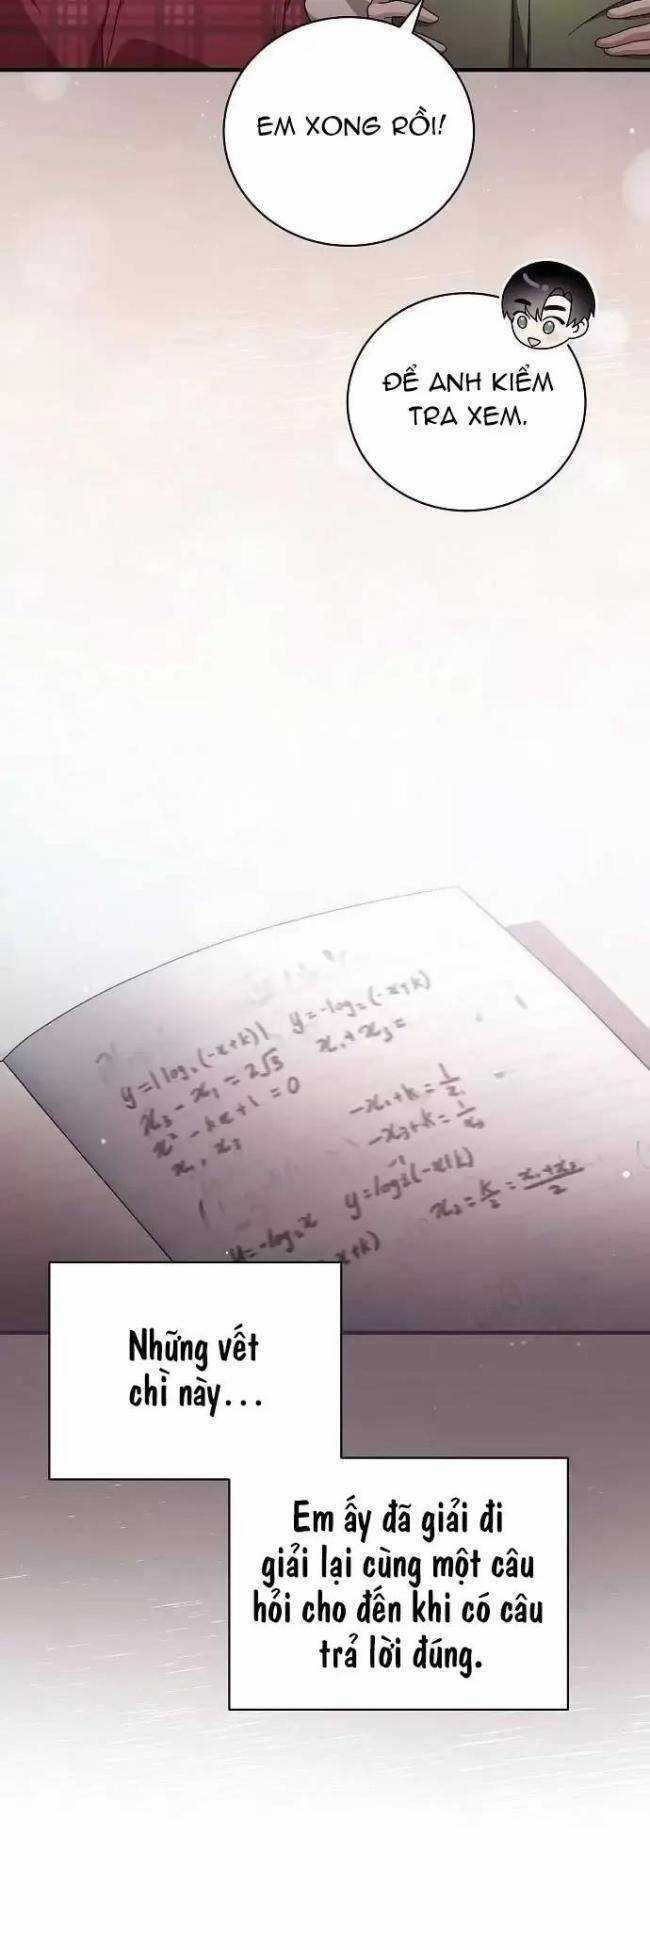 EM XONG RỒI!
ĐỂ ANH KIỂM
TRA XEM.
y=|log₂(-x+k)| y=-log₂(-x+k)
x₃-x₁=2√3 x₁+x₃=
x²-kx+1=0
x₁, x₃
-x₁+k=1/x₁
-x₃+k=1/x₃
y=-log₂x y=log₂(-x+k)
x₂=k/2=(x₁+x₃)/2
Những vết
chì này...
Em ấy đã giải đi
giải lại cùng một câu
hỏi cho đến khi có câu
trả lời đúng.